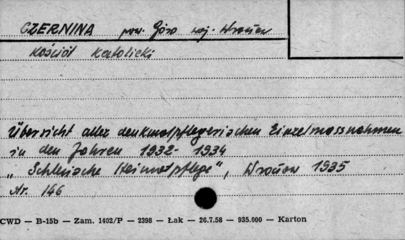 CZERNINA pow. Góra woj. Wrocław
Kościół Katolicki
Übersicht aller denkmalpflegerischen Einzelmassnahmen
in den Jahren 1932-1934
„Schlesische Heimatpflege", Wrocław 1935
Nr. 146
CWD — B-15b — Zam. 1402/P — 2398 — Łak — 26.7.58 — 935.000 — Karton